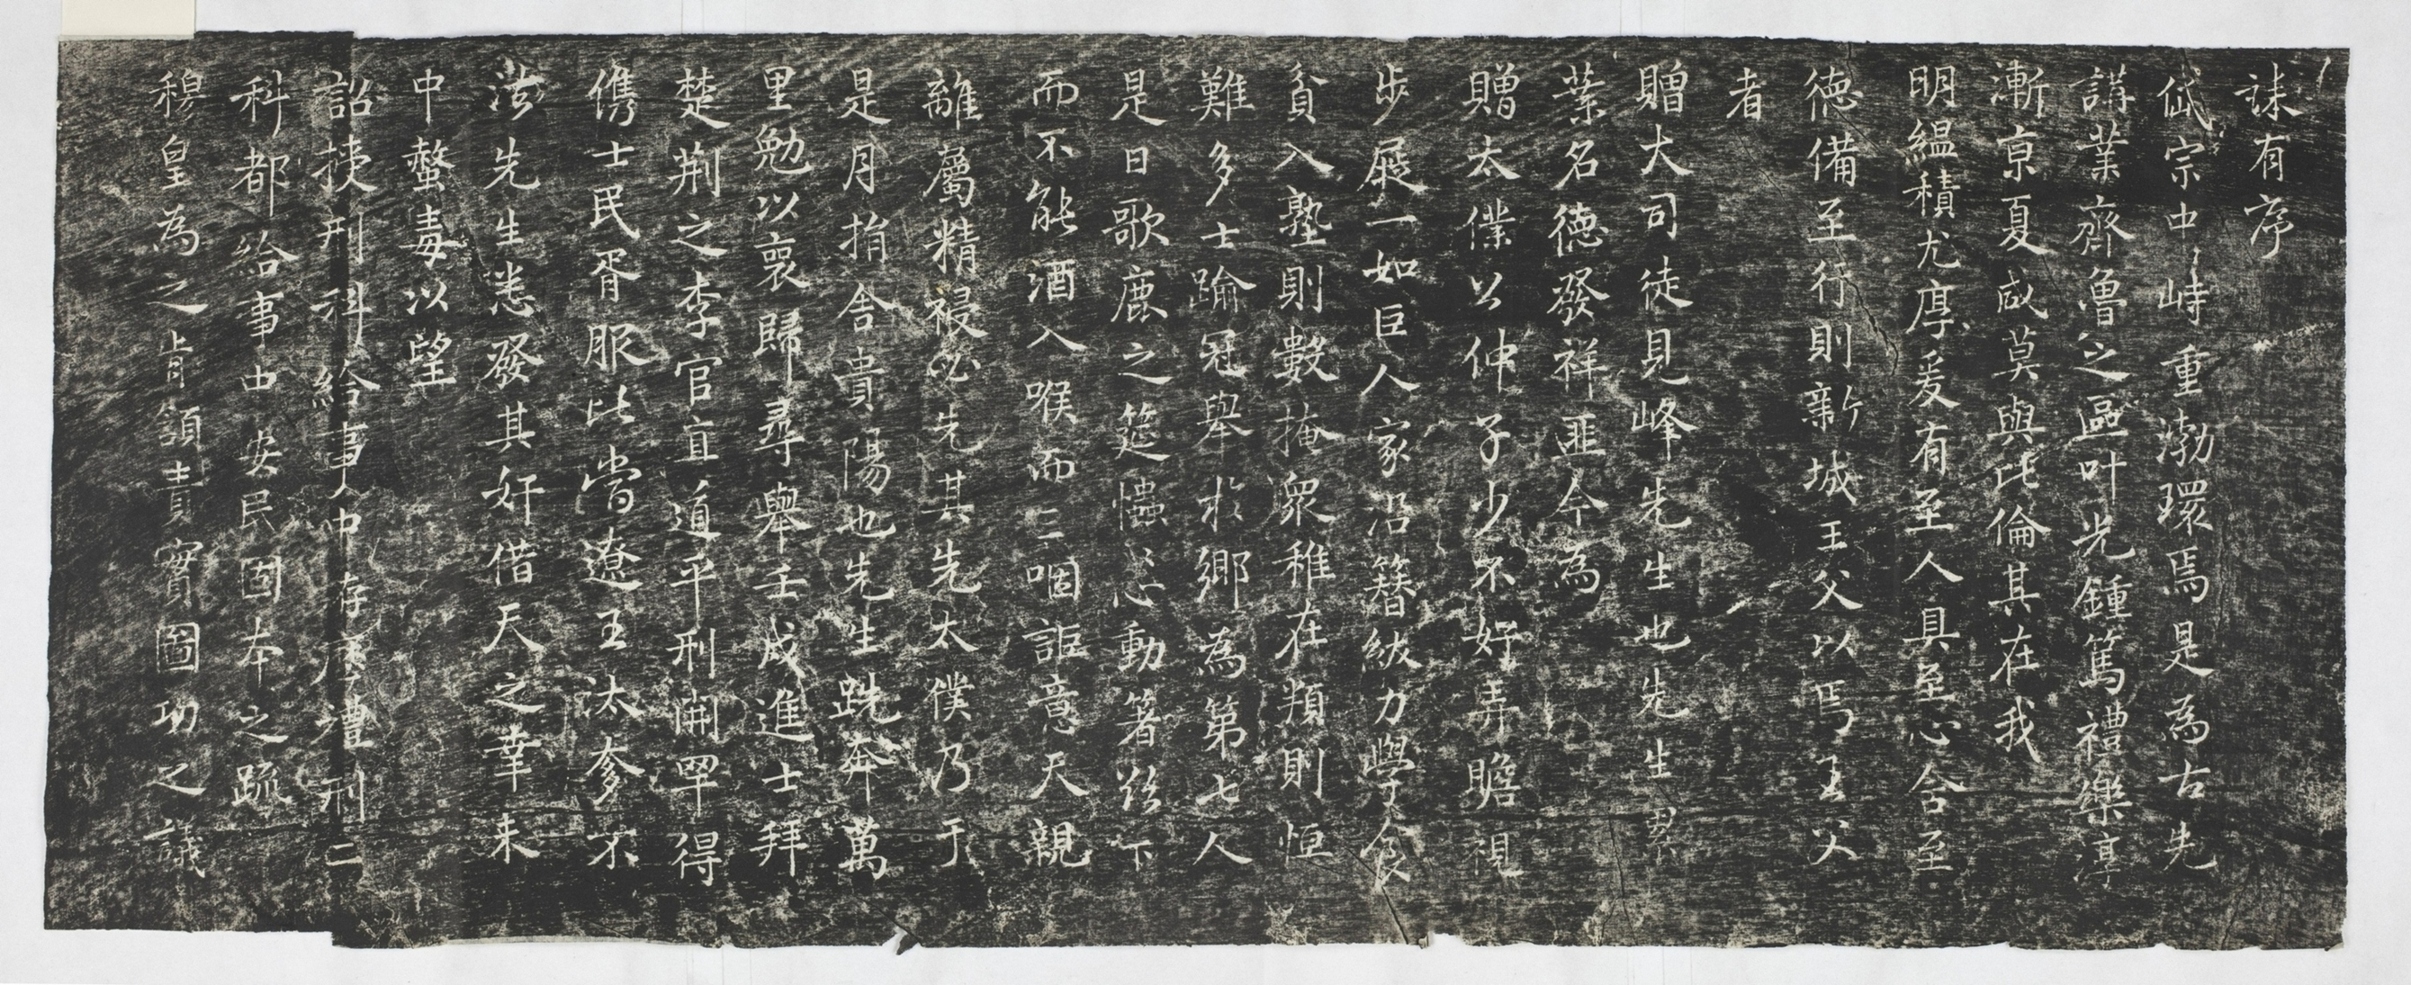 誄有序
岱宗中峙重渤環焉是為古先
講業齊魯之區叶光鍾篤禮樂淳
漸亰夏咸莫與比倫其在我
明縕積尤厚爰有至人具至心含至
徳備至行則新城王父以焉王父
者
贈大司徒見峰先生也先生
業名徳發祥匪今為
贈太僕公仲子少不好弄瞻視
步屣一如巨人家沿簪紱力學食
貧入塾則數掩衆稚在類則恒
難多士踰冠舉於鄉為第七人
是日歌鹿之筵懾心動箸玆下
而不能酒入喉而三咽詎意天親
離屬精祲必先其先太僕乃于
是月捐舍貴陽也先生跣奔萬
里勉以襄歸尋舉壬戌進士拜
楚荊之李官直道平刑開罕得
儁士民胥服比當遼王汰奓不
法先生悉發其奸借天之幸未
中螫毒以望
詔擢刑科給事中存歷禮刑二
科都給事中安民固本之疏
穆皇為之肯頷責實圖功之議